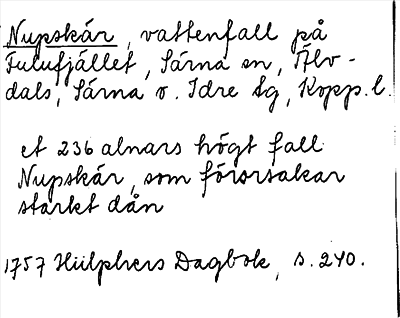 Nupskär, vattenfall på
Fulufjället, Särna sn, Älv-
dals, Särna o. Idre tg, Kopp. l.
et 236 alnars högt fall
Nupskär, som förorsakar
starkt dån
1757 Hülphers Dagbok, s. 240.